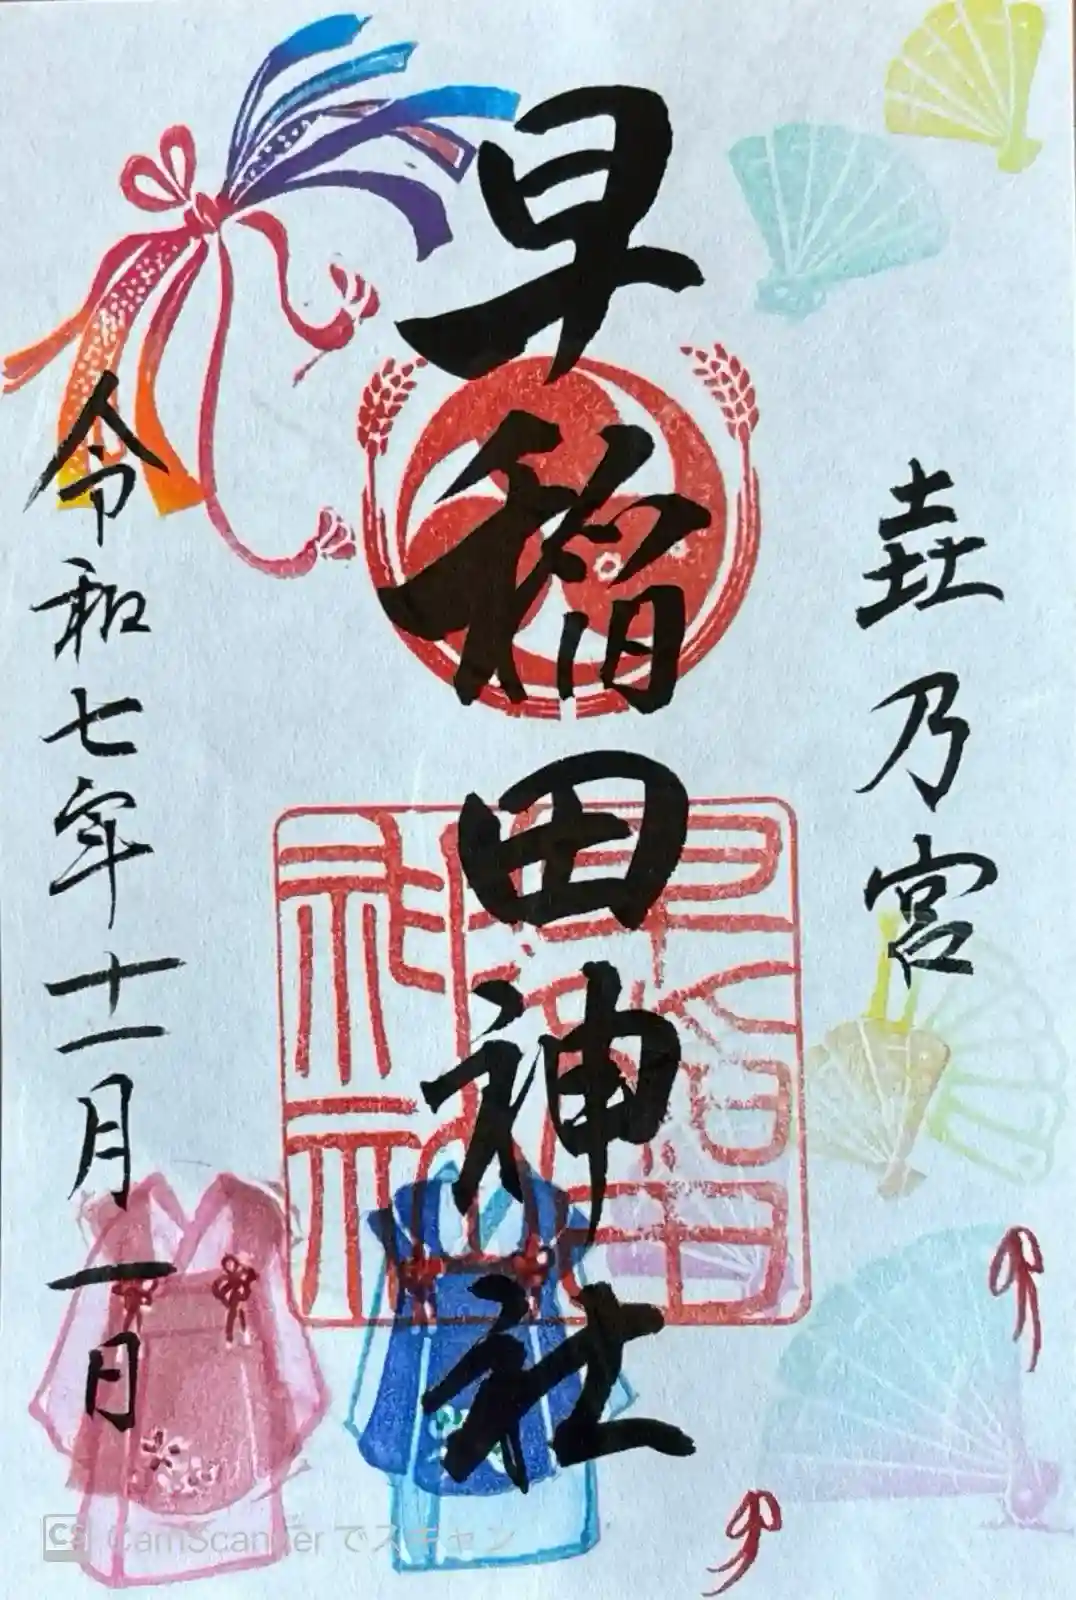 壵乃宮
早稲田神社
令和七年十一月一日
早稲田神社
CS CamScannerでスキャン